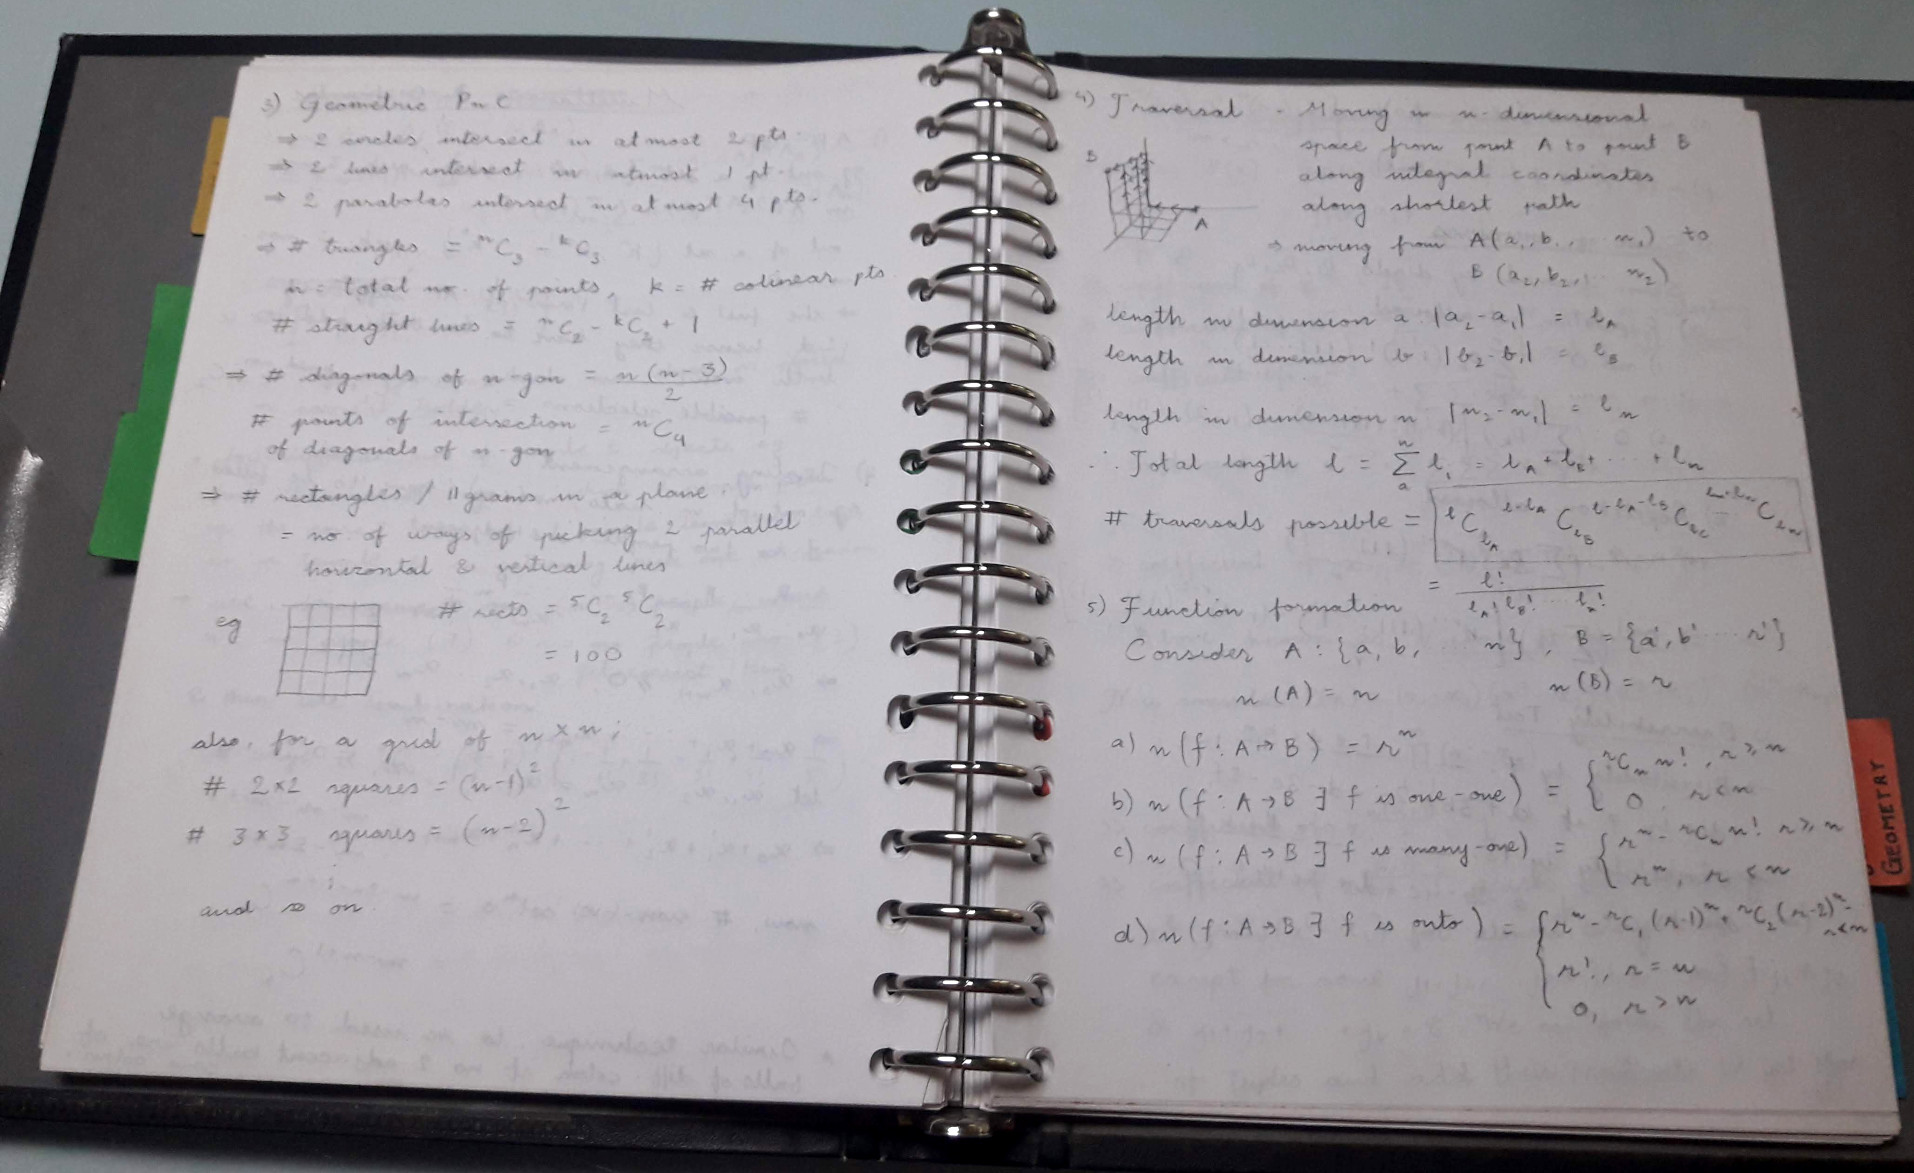 3) Geometric PnC
⇒ 2 circles intersect in atmost 2 pts.
⇒ 2 lines intersect in atmost 1 pt.
⇒ 2 parabolas intersect in atmost 4 pts.
⇒ # triangles = ⁿC₃ - ᵏC₃
n = total no. of points, k = # colinear pts.
# straight lines = ⁿC₂ - ᵏC₂ + 1
⇒ # diagonals of n-gon = n(n-3)/2
# points of intersection = ⁿC₄
of diagonals of n-gon
⇒ # rectangles / ||grams in a plane.
= no. of ways of picking 2 parallel
horizontal & vertical lines
eg # rects = ⁵C₂ ⁵C₂
= 100
also, for a grid of n × n;
# 2×2 squares = (n-1)²
# 3×3 squares = (n-2)²
⋮
and so on.
4) Traversal - Moving in n-dimensional
space from point A to point B
along integral coordinates
along shortest path
B
A
⇒ moving from A(a₁, b₁, ... n₁) to
B(a₂, b₂, ... n₂)
length in dimension a: |a₂-a₁| = l_A
length in dimension b: |b₂-b₁| = l_B
length in dimension n: |n₂-n₁| = l_n
∴ Total length l = Σₐⁿ lᵢ = l_A + l_B + ... + l_n
# traversals possible = ˡC_{l_A} ^{l-l_A}C_{l_B} ^{l-l_A-l_B}C_{l_C}
= l! / l_A! l_B! ... l_n!
5) Function formation
Consider A : {a, b, n}, B = {a', b' ... r'}
n(A) = n n(B) = r
a) n(f : A→B) = rⁿ
b) n(f : A→B ∃ f is one-one) = { ʳCₙ n!, r ≥ n
0, r < n
c) n(f : A→B ∃ f is many-one) = { rⁿ - ʳCₙ n! r ≥ n
rⁿ, r < n
d) n(f : A→B ∃ f is onto) = { rⁿ - ʳC₁(r-1)ⁿ + ʳC₂(r-2)ⁿ -
r<n
r!, r = n
0, r > n
GEOMETRY